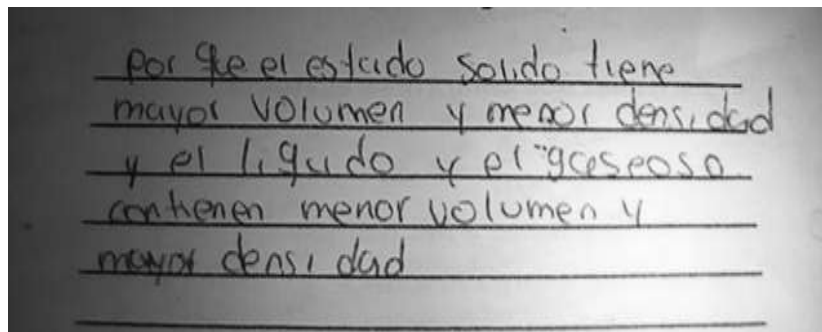 por que el estado solido tiene
mayor volumen y menor densidad
y el liqudo y el gaseoso
contienen menor volumen y
mayor densidad